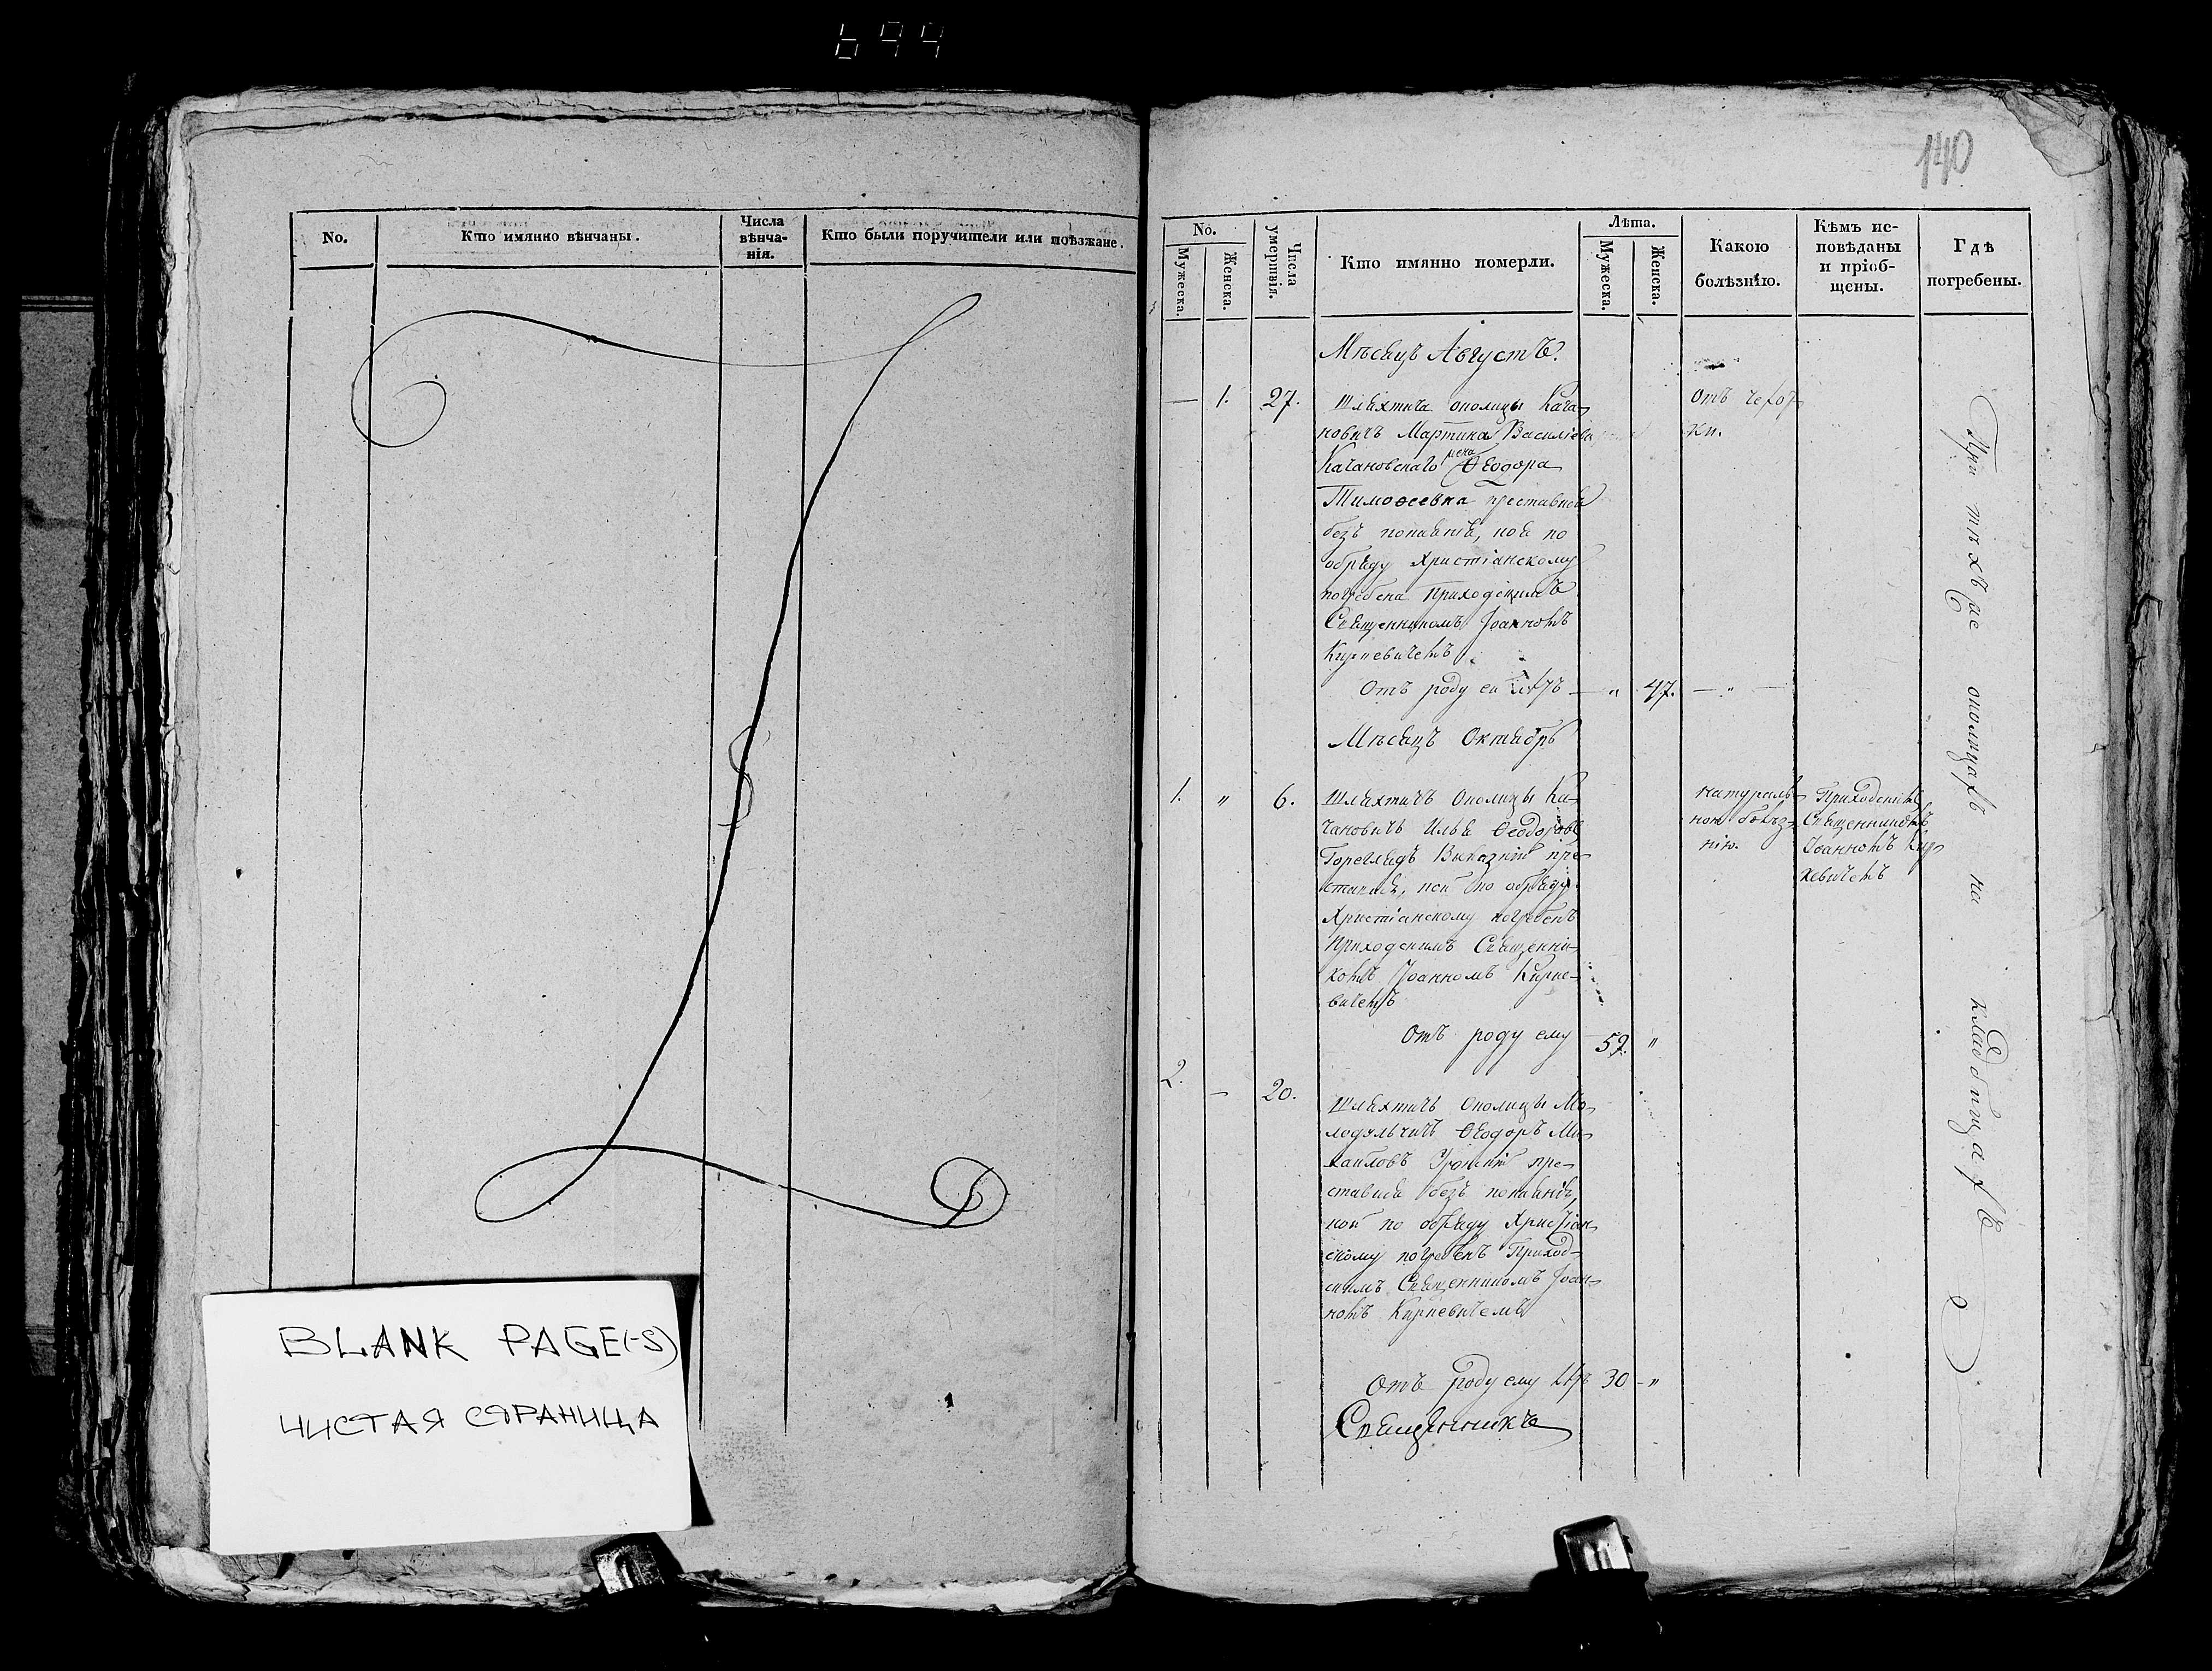 699
No.
Кто имянно вѣнчаны.
Числа
вѣнча-
нія.
Кто были поручители или поѣзжане.
BLANK PAGE(-S)
ЧИСТАЯ СТРАНИЦА
140
No.
Мужеска.
Женска.
Числа
умертвія.
Кто имянно померли.
Лѣта.
Мужеска.
Женска.
Какою
болѣзнію.
Кѣмъ ис-
повѣданы
и пріоб-
щены.
Гдѣ
погребены.
Мѣсяцъ Августъ.
— 1. 27.
Шляхтича околицы Кача-
новичъ Мартина Василіева
Качановскаго жена Ѳеодора
Тимоѳеевна преставися
безъ покаянія, коя по
обряду Христіанскому
погребена Приходскимъ
Священникомъ Іоанномъ
Киркевичемъ
Отъ роду ей лѣтъ — " 47. — " —
отъ
ки.
Мѣсяцъ Октябрь
1. " 6.
Шляхтичъ Околицы Ка-
чановичъ Илья Ѳеодоровъ
Гореглядъ пре-
ставися, кой по обряду
Христіанскому погребенъ
Приходскимъ Священни-
комъ Іоанномъ Кирке-
вичемъ
Отъ роду ему 52. "
натураль-
ною болѣз-
нію.
Приходскимъ
Священникомъ
Іоанномъ Кир-
кевичемъ
2. — 20.
Шляхтичъ Околицы Мо-
лодельчичъ Ѳеодоръ Ми-
хаиловъ пре-
ставися безъ покаянія,
кой по обряду Христіан-
скому погребенъ Приход-
скимъ Священникомъ Іоан-
номъ Киркевичемъ
Отъ роду ему лѣтъ 30 - "
Священникъ
При тѣхъ же околицахъ на кладбищахъ